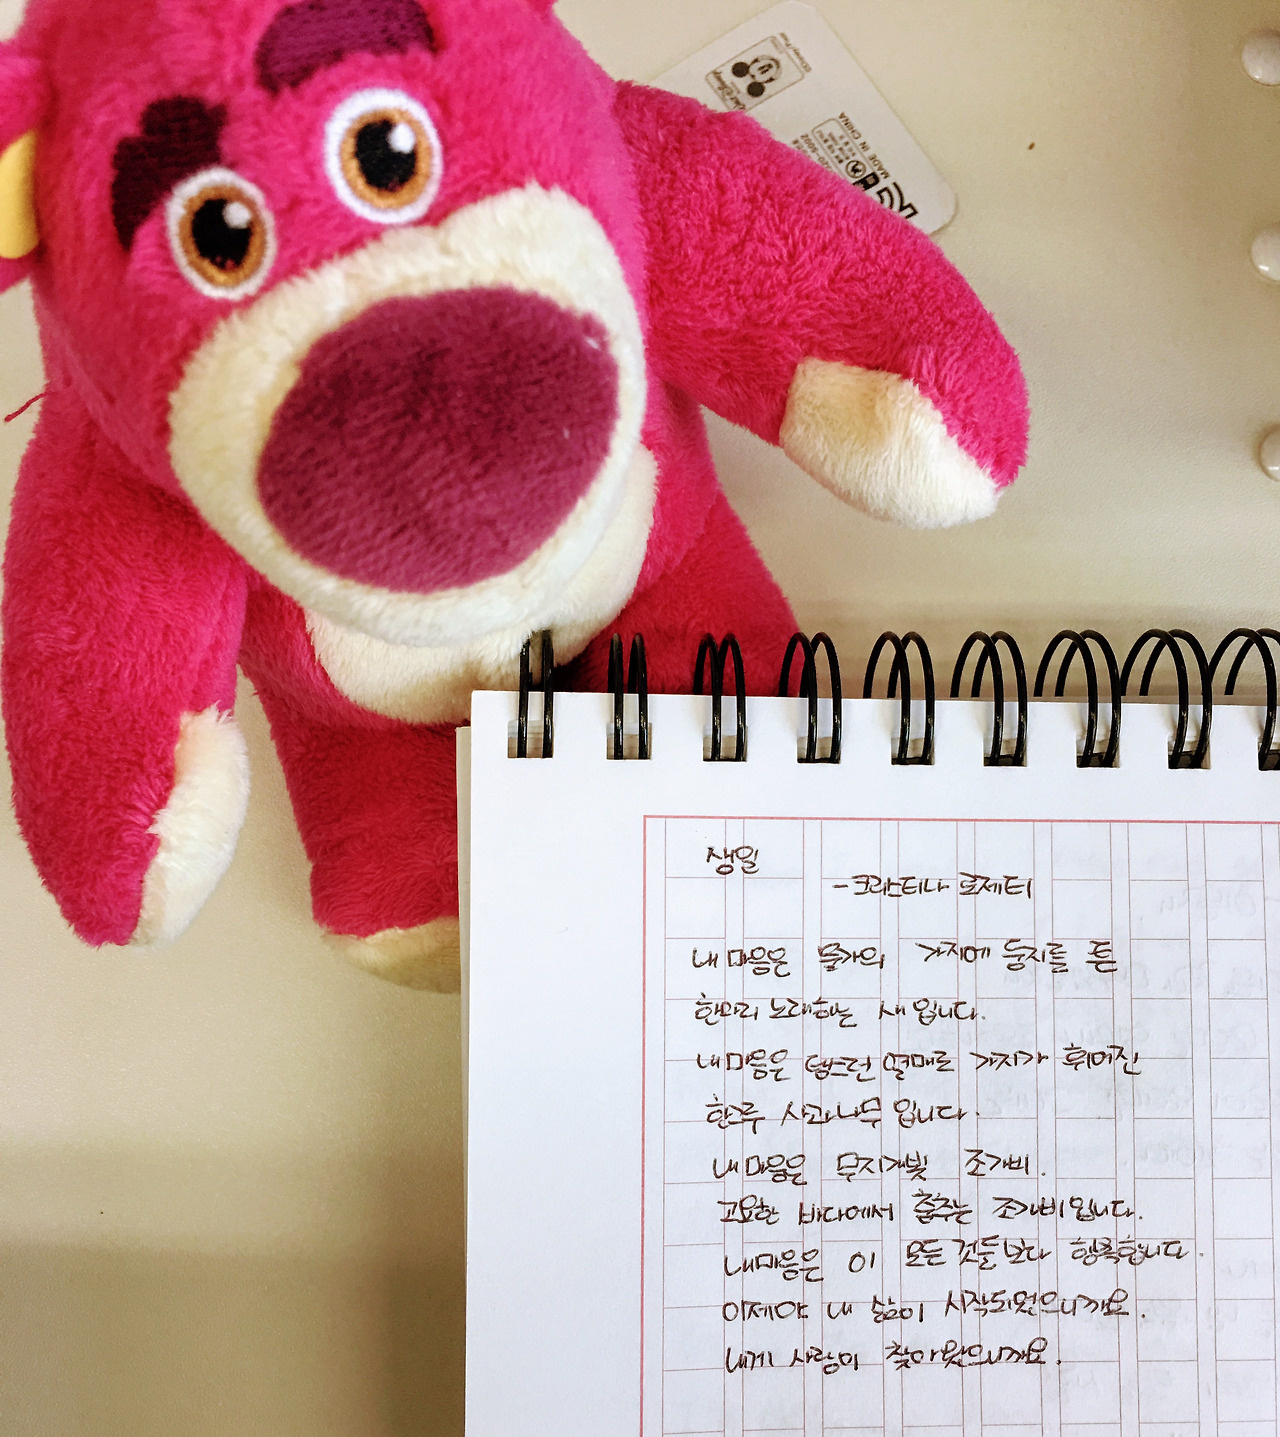 Walt Disney
©Disney/Pixar
MADE IN CHINA
생일
-크리스티나 로제티
내 마음은 물가의 가지에 둥지를 튼
한마리 노래하는 새입니다.
내 마음은 탱그런 열매로 가지가 휘어진
한그루 사과나무입니다.
내 마음은 무지개빛 조개비.
고요한 바다에서 춤추는 조개비입니다.
내 마음은 이 모든 것들보다 행복합니다.
이제야 내 삶이 시작되었으니까요.
내게 사랑이 찾아왔으니까요.